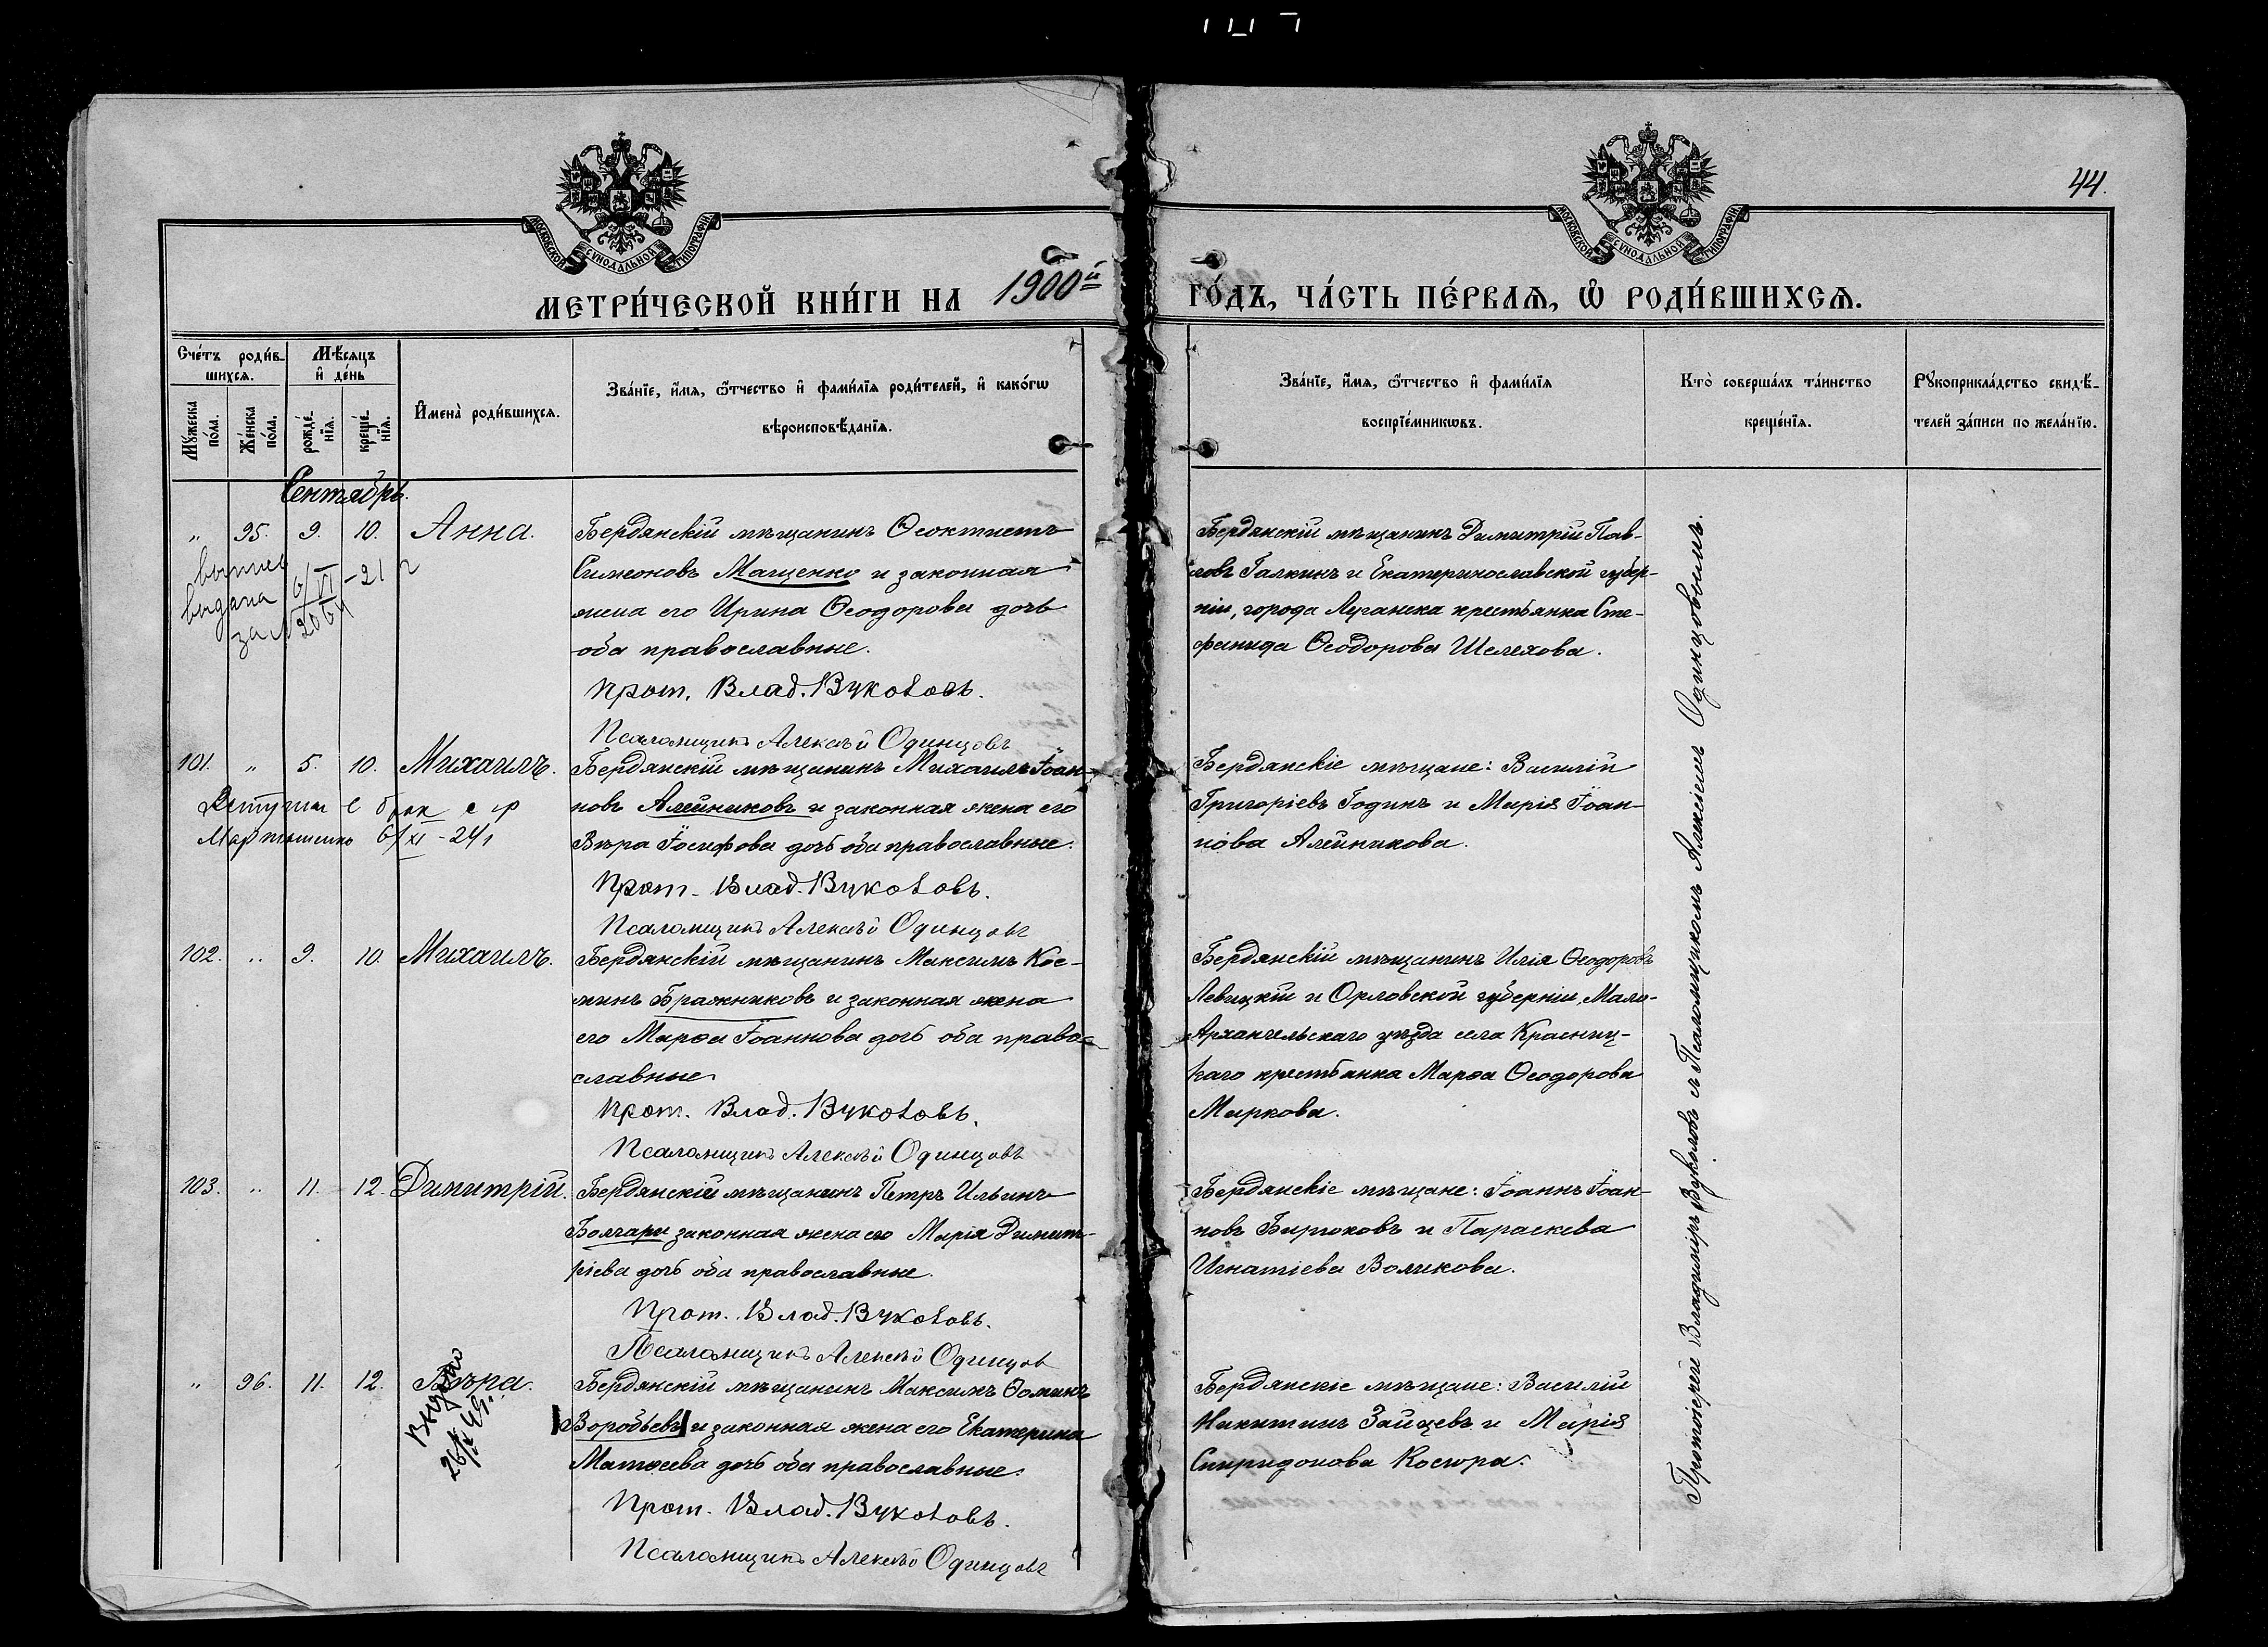 44.
МОСКОВСКОЙ СѴНОДАЛЬНОЙ ТИПОГРАФІИ
МОСКОВСКОЙ СѴНОДАЛЬНОЙ ТИПОГРАФІИ
МЕТРИ́ЧЕСКОЙ КНИ́ГИ НА 1900й
ГО́ДЪ, ЧА́СТЬ ПЕ́РВАѦ, Ѡ҆ РОДИ́ВШИХСѦ.
Сче́тъ роди́в-
шихсѧ.
Мѣ́сѧцъ
и҆ де́нь
Мꙋ́жеска
по́ла.
Же́нска
по́ла.
рожде́-
нїѧ.
креще́-
нїѧ.
И҆мена̀ роди́вшихсѧ.
Зва́нїе, и҆́мѧ, ѻ҆́тчество и҆ фами́лїѧ роди́телей, и҆ како́гѡ
вѣроисповѣ́данїѧ.
Зва́нїе, и҆́мѧ, ѻ҆́тчество и҆ фами́лїѧ
воспрїе́мникѡвъ.
Кто̀ соверша́лъ та́инство
креще́нїѧ.
Рꙋкоприкла́дство свидѣ́-
телей за́писи по жела́нїю.
Сентябрь.
" 95. 9. 10. Анна.
выдана 6/VI-21 г
за № 2064
Бердянскій мѣщанинъ Ѳеоктистъ
Симеоновъ Мащенко и законная
жена его Ирина Ѳеодорова дочь
оба православные.
Прот. Влад. Вуколовъ.
Псаломщикъ Алексѣй Одинцовъ
Бердянскій мѣщанинъ Димитрій Пав-
ловъ Галкинъ и Екатеринославской губер-
ніи, города Луганска крестьянка Сте-
фанида Ѳеодорова Шелехова.
101. " 5. 10. Михаилъ.
Вступил в брак с гр
Мартыненко 6/XI-24г
Бердянскій мѣщанинъ Михаилъ Іоан-
новъ Алейниковъ и законная жена его
Вѣра Іосифова дочь оба православные.
Прот. Влад. Вуколовъ.
Псаломщикъ Алексѣй Одинцовъ
Бердянскіе мѣщане: Василій
Григоріевъ Годинъ и Марія Іоан-
нова Алейникова.
102. " 9. 10. Михаилъ.
Бердянскій мѣщанинъ Максимъ Кос-
минъ Бражниковъ и законная жена
его Марѳа Іоаннова дочь оба право-
славные
Прот. Влад. Вуколовъ.
Псаломщикъ Алексѣй Одинцовъ
Бердянскій мѣщанинъ Илія Ѳеодоровъ
Левицкій и Орловской губерніи, Мало-
Архангельскаго уѣзда села Красниц-
каго крестьянка Марѳа Ѳеодорова
Маркова.
103. " 11. 12. Димитрій.
Бердянскій мѣщанинъ Петръ Ильинъ
Болгари законная жена его Марія Димит-
ріева дочь оба православные.
Прот. Влад. Вуколовъ.
Псаломщикъ Алексѣй Одинцов
Бердянскіе мѣщане: Іоаннъ Іоан-
новъ Бирюковъ и Параскева
Игнатіева Воликова.
" 96. 11. 12. Вѣра.
Выдано
26/X 49г.
Бердянскій мѣщанинъ Максимъ Ѳоминъ
Воробьевъ и законная жена его Екатерина
Матѳеева дочь оба православные.
Прот. Влад. Вуколовъ.
Псаломщикъ Алексѣй Одинцовъ
Бердянскіе мѣщане: Василій
Никитинъ Зайцевъ и Марія
Спиридонова Косюра.
Протоіерей Владиміръ Вуколовъ съ Псаломщикомъ Алексіемъ Одинцовымъ.